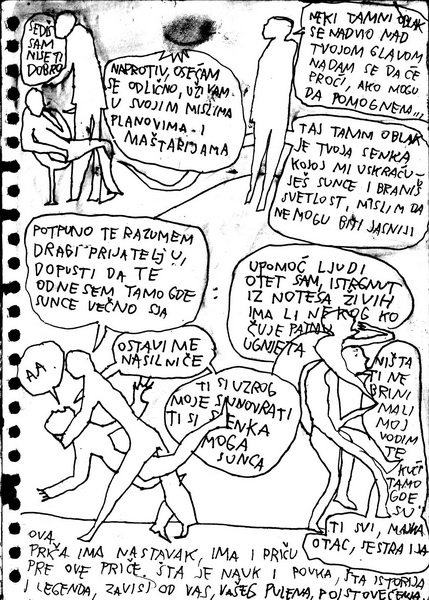 SEDIŠ
SAM
NIJE TI
DOBRO
NAPROTIV, OSEĆAM
SE ODLIČNO, UŽIVAM
U SVOJIM MISLIMA
PLANOVIMA I
MAŠTARIJAMA
NEKI TAMNI OBLAK
SE NADVIO NAD
TVOJOM GLAVOM
NADAM SE DA ĆE
PROĆI, AKO MOGU
DA POMOGNEM...
TAJ TAMNI OBLAK
JE TVOJA SENKA
KOJOJ MI USKRAĆU-
JEŠ SUNCE I BRANIŠ
SVETLOST, MISLIM DA
NE MOGU BITI JASNIJI
POTPUNO TE RAZUMEM
DRAGI PRIJATELJU,
DOPUSTI DA TE
ODNESEM TAMO GDE
SUNCE VEČNO SJA
OSTAVI ME
NASILNIČE
AA
TI SI UZROG
MOJE SUNOVRATI
TI SI SENKA
MOGA
SUNCA
UPOMOĆ LJUDI
OTET SAM, ISTRGNUT
IZ NOTESA ŽIVIH
IMA LI NEKOG KO
ČUJE PATNJU
UGNJETA
NIŠTA
TI NE
BRINI
MALI
MOJ
VODIM
TE
KUĆI
TAMO
GDE
SU
TI SVI, MAJKA
OTAC, SESTRA I JA
OVA
PRIČA IMA NASTAVAK, IMA I PRIČU
PRE OVE PRIČE. ŠTA JE NAUK I POUKA, ŠTA ISTORIJA
I LEGENDA, ZAVISI OD VAS, VAŠEG PULENA, POISTOVEĆENJA.